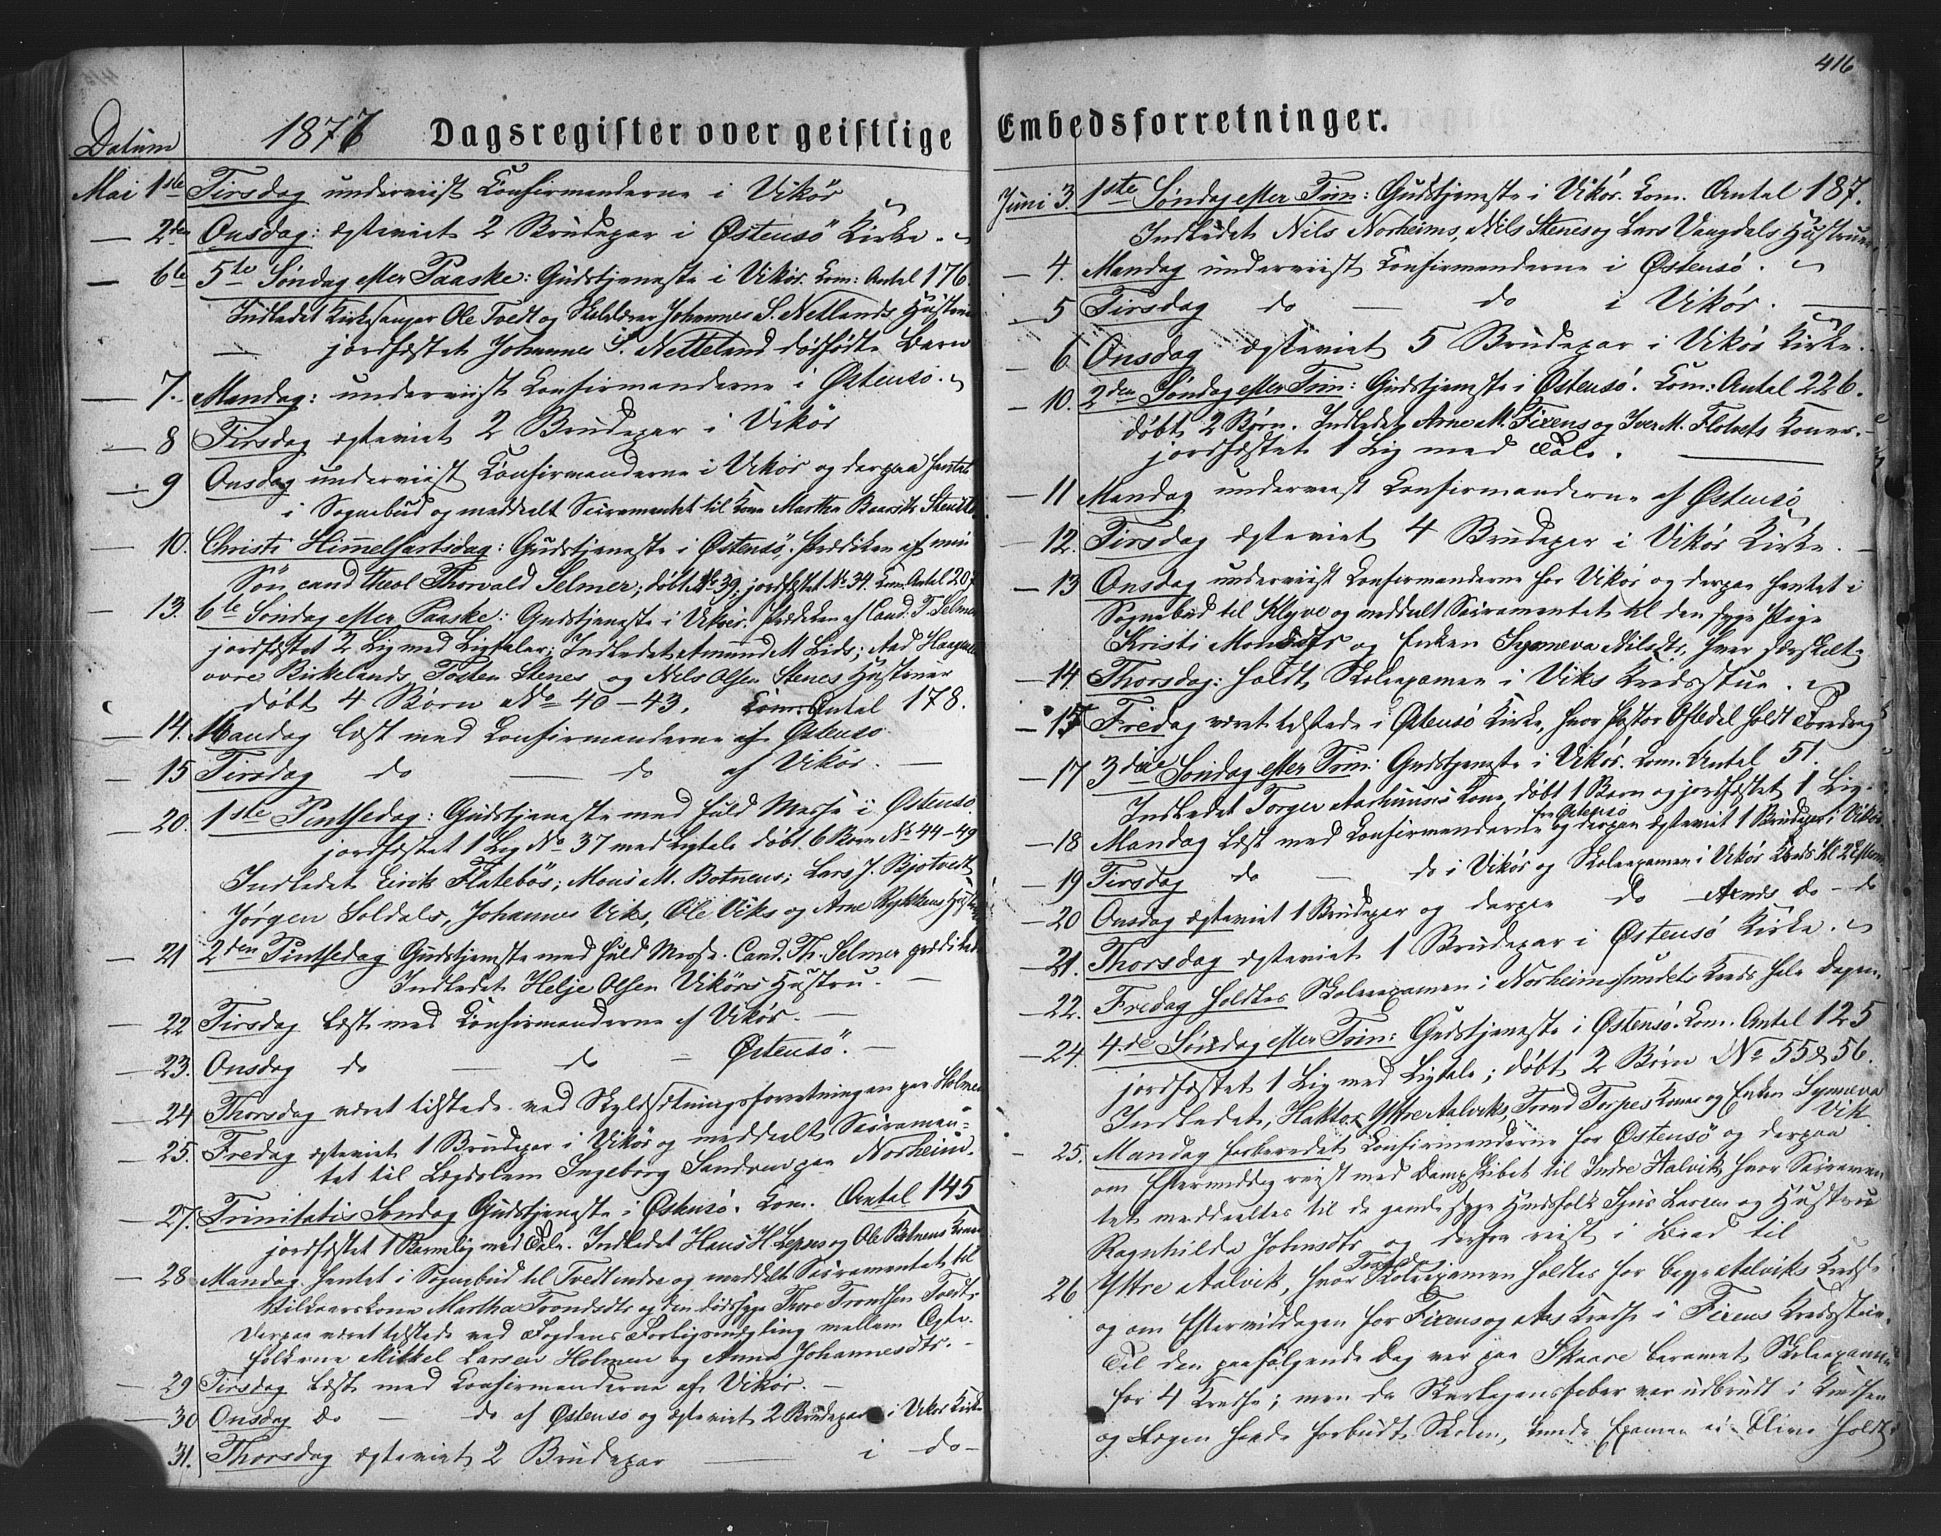 416
1877 Dagsregister over geistlige Embedsforretninger.
Datum
Mai 1ste Tirsdag underviist Confirmanderne i Vikör
— 2den Onsdag: ægteviet 2 Brudepar i Østensö Kirke.
— 6te 5te Søndag efter Paaske: Gudstjeneste i Vikör. Kom: Antal 176.
Indledet Kirkesanger Ole Tvedt og Skolelærer Johannes S. Netlands Hustruer
— jordfæstet Johannes S. Netteland dödfødte Barn
— 7. Mandag: underviist Confirmanderne i Østensö.
— 8 Tirsdag ægteviet 2 Brudepar i Vikör
— 9 Onsdag underviist Confirmanderne i Vikör og derpaa hentet
i Sognebud og meddelt Sacramentet til Kone Martha
— 10. Christi Himmelfartsdag: Gudstjeneste i Østensö. Prædiken af min
Søn cand theol Thorvald Selmer; døbt No 39; jordfæstet No 34. Kom. Antal 207
— 13. 6te Søndag efter Paaske: Gudstjeneste i Vikör. Prædiken af Cand. T. Selmer
jordfæstet 2 Lig med Ligtaler; Indledet Amund M. Lids; Aad Haagens
övre Birkelands, Tosten Stenes og Nils Olsen Stenes Hustruer
døbt 4 Børn No 40–43. Kom: Antal 178.
— 14. Mandag læst med Confirmanderne af Østensö
— 15 Tirsdag do — do af Vikör. —
— 20. 1ste Pintsedag: Gudstjeneste med fuld Messe i Østensö.
jordfæstet 1 Lig No 37 med Ligtale døbt 6 Børn No 44–49
Indledet Eirik Flatebös; Mons M. Botnens; Lars J. Bjotvedt
Jørgen Soldals, Johannes Viks, Ole Viks og Arne Rykkens Hustruer
— 21 2den Pintsedag Gudstjeneste med fuld Messe. Cand. Th. Selmer prædikede
Indledet Helje Olsen Vikörs Hustru. —
— 22 Tirsdag læst med Confirmanderne af Vikör. —
— 23. Onsdag do — do — Østensö. —
— 24 Thorsdag været tilstede ved Skyldsætningsforretningen paa Holmen
— 25. Fredag ægteviet 1 Brudepar i Vikör og meddeelt Sacramen-
tet til Lægdslem Ingeborg Sandven paa Norheim.
— 27. Trinitatis Søndag Gudstjeneste i Østensö. Kom. Antal 145
jordfæstet 1 Barnelig med Tale. Indledet Hans H. Lepsøs og Ole Botnens Koner
— 28 Mandag. hentet i Sognebud til Tvedt indre og meddelt Sacramentet til
Vilkaarskone Martha Trondsdtr og den dødssyge Thore Trondsen Tvedt
Derpaa været tilstede ved Fogdens Forligsmægling mellem Ægte-
folkene Mikkel Larsen Holmen og Anna Johannesdtr. —
— 29 Tirsdag læst med Confirmanderne af Vikör. —
— 30 Onsdag do — do af Østensö og ægteviet 2 Brudepar i Vikör Kirke
31. Thorsdag ægteviet 2 Brudepar — i do —
Juni 3. 1ste Søndag efter Trin: Gudstjeneste i Vikör. Kom. Antal 187.
Indledet Nils Norheims, Nils Stenes og Lars Vangdals Hustruer
— 4. Mandag underviist Confirmanderne i Østensö.
— 5 Tirsdag do — do i Vikör. —
— 6 Onsdag ægteviet 5 Brudepar i Vikör Kirke.
— 10. 2den Søndag efter Trin: Gudstjeneste i Østensö. Kom: Antal 226.
døbt 2 Børn. Indledet Arne M. Fixens og Iver M. Flotvets Koner.
jordfæstet 1 Lig med Tale. —
— 11 Mandag underviist Confirmanderne af Østensö
— 12. Tirsdag ægteviet 4 Brudepar i Vikör Kirke. —
— 13 Onsdag underviist Confirmanderne for Vikör og derpaa hentet i
Sognebud til Klyve og meddelt Sacramentet til den syge Pige
Kristi Monsdtr og Enken Synneva Nilsdtr, hver særskilt
— 14. Thorsdag: holdt Skoleexamen i Viks Kredsstue.
— 15 Fredag været tilstede i Østensö Kirke, hvor Pastor Oftedal holdt Foredrag
— 17 3die Søndag efter Trin: Gudstjeneste i Vikör. Kom. Antal 51.
Indledet Torger Aarhuus's Kone, døbt 1 Barn og jordfæstet 1 Lig.
fra Østensö
— 18 Mandag Læst med Confirmanderne og derpaa ægteviet 1 Brudepar i Vikör
— 19 Tirsdag do — do i Vikör og Skoleexamen i Vikör Kreds Kl 2 Efterm.
— 20 Onsdag ægteviet 1 Brudepar og derpaa do — do — do
— 21. Thorsdag ægteviet 1 Brudepar i Østensö Kirke.
— 22. Fredag holdtes Skoleexamen i Norheimssundets Kreds hele Dagen.
— 24. 4de Søndag efter Trin: Gudstjeneste i Østensö. Kom. Antal 125
jordfæstet 1 Lig med Ligtale; døbt 2 Børn No 55 & 56.
Indledet, Haktor Yttre Aalviks, Trond Torpes Koner og Enken Synneva
Vik
— 25. Mandag forberedet Confirmanderne for Østensö og derpaa
om Eftermiddag reist med Dampskibet til Indre Aalvik, hvor Sacramen-
tet meddeeltes til de gamle syge Huusfolk Sjur Larsen og Hustru
Ragnhilda Johnsdtr og derfra reist i Baad til
26 Yttre Aalvik, hvor Tirsd. Skoleexamen holdtes for begge Aalviks Kredse
og om Eftermiddagen for Fixens og Aas Kredse i Fixens Kredsstue.
Til den paafølgende Dag var paa Skaare berammet Skoleexamen
for 4 Kredse; men da Skarlagensfeber var udbrudt i Kredsen
og Lægen havde forbudt Skolen, kunde Examen ei blive holdt